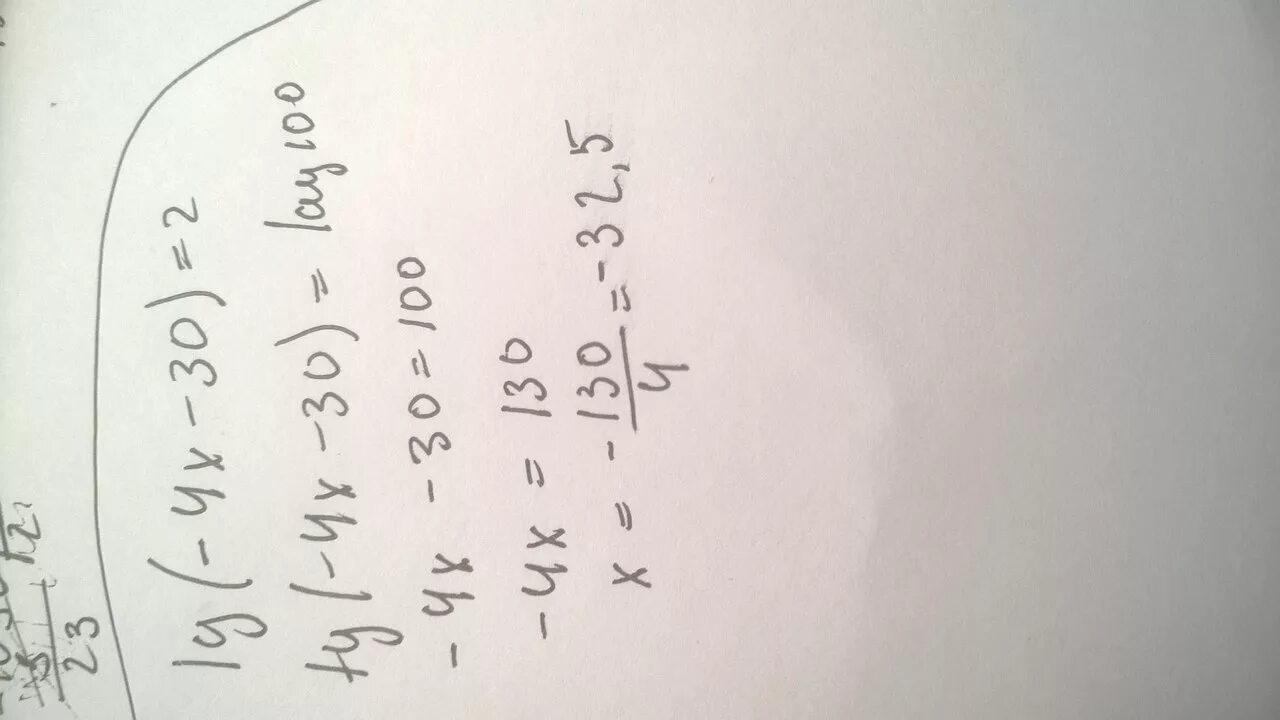 23
lg(-4x-30)=2
lg(-4x-30)= log 100
-4x -30=100
-4x = 130
x= -130/4=-32,5